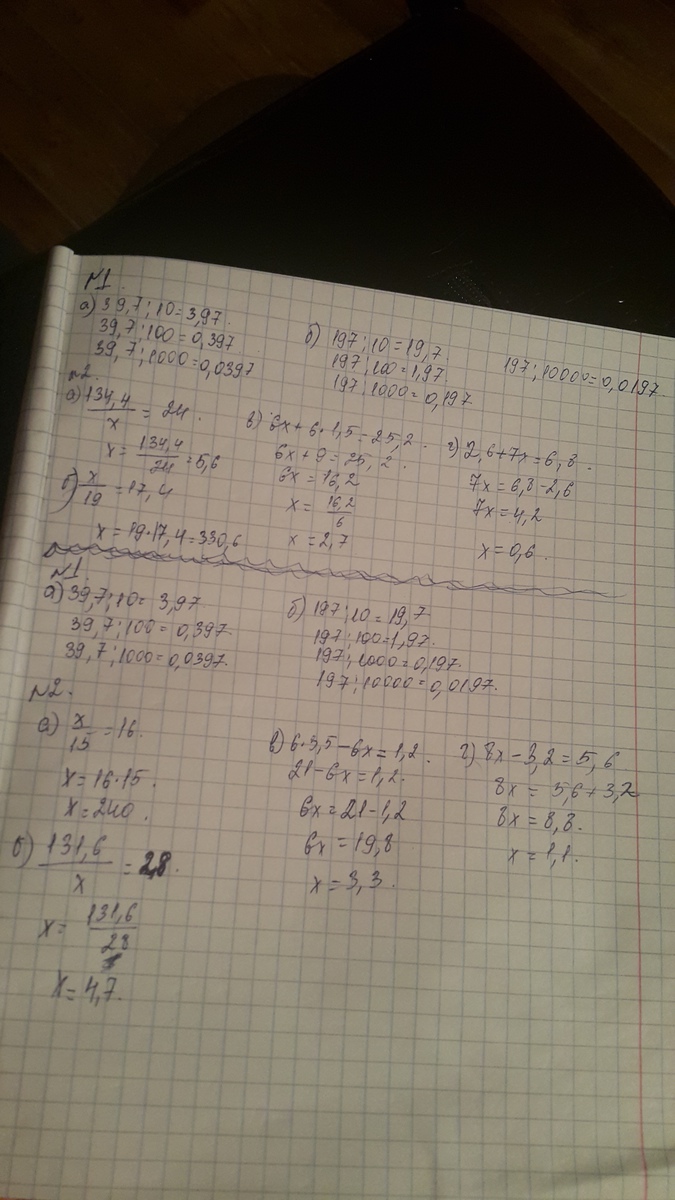 №1.
а) 39,7 : 10 = 3,97.
39,7 : 100 = 0,397
39,7 : 1000 = 0,0397
б) 197 : 10 = 19,7.
197 : 100 = 1,97
197 : 1000 = 0,197
197 : 10000 = 0,0197.
№2.
а) 134,4/x = 24.
x = 134,4/24 = 5,6
б) x/19 = 17,4
x = 19·17,4 = 330,6
в) 6x + 6·1,5 = 25,2.
6x + 9 = 25,2.
6x = 16,2
x = 16,2/6
x = 2,7
г) 2,6 + 7x = 6,8.
7x = 6,8 - 2,6
7x = 4,2
x = 0,6.
№1.
а) 39,7 : 10 = 3,97
39,7 : 100 = 0,397.
39,7 : 1000 = 0,0397.
б) 197 : 10 = 19,7
197 : 100 = 1,97.
197 : 1000 = 0,197.
197 : 10000 = 0,0197.
№2.
а) x/15 = 16.
x = 16·15.
x = 240.
б) 131,6/x = 28.
x = 131,6/28
x = 4,7.
в) 6·3,5 - 6x = 1,2.
21 - 6x = 1,2.
6x = 21 - 1,2
6x = 19,8
x = 3,3.
г) 8x - 3,2 = 5,6
8x = 5,6 + 3,2
8x = 8,8.
x = 1,1.